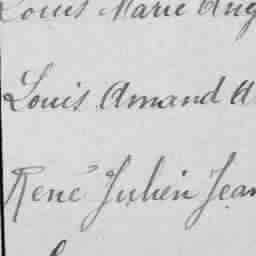 Louis Marie Aug
Louis Amand A
René Julien Jean